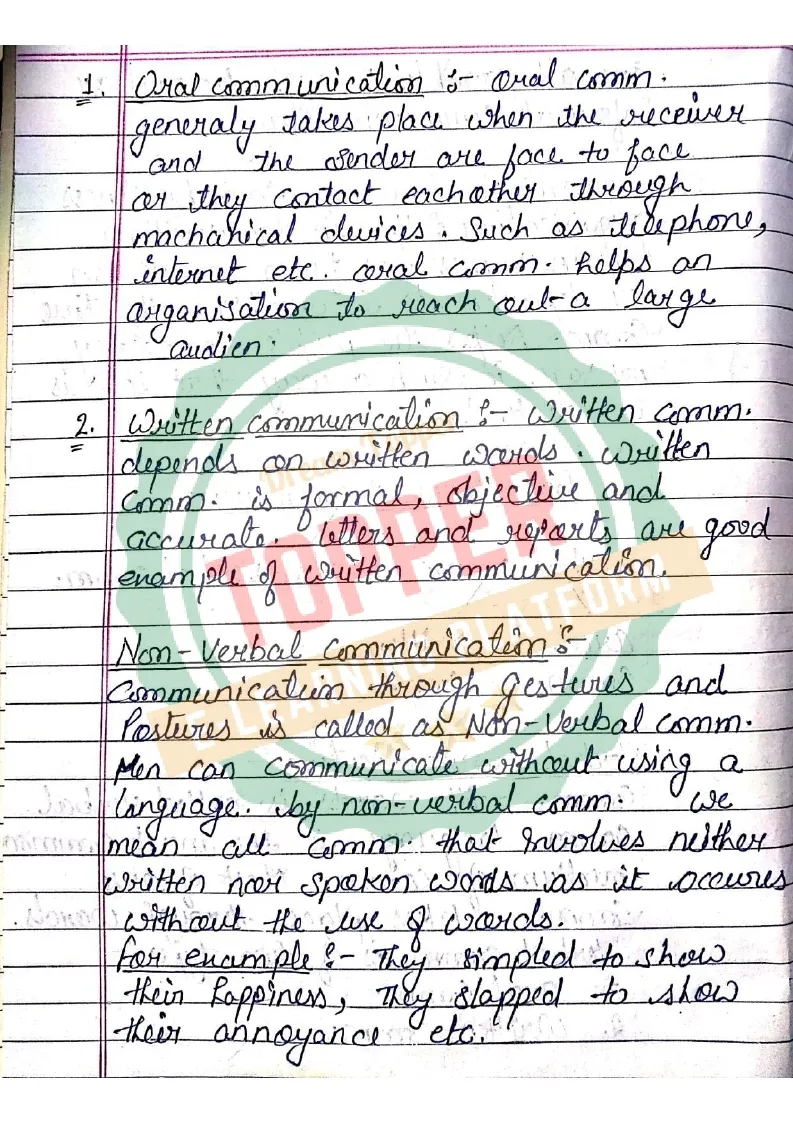 1. Oral communication :- Oral comm.
generaly takes place when the receiver
and the sender are face to face
or they contact eachother through
machahical devices. Such as telephone,
internet etc. oral comm. helps an
organisation to reach out a large
audien.
2. Written communication :- Written comm.
depends on written words. written
Comm. is formal, objective and
accurate. letters and reports are good
enample of written communication.
Non-Verbal Communication :-
Communication through gestures and
Postures is called as Non-Verbal comm.
Men can communicate without using a
language. by non-verbal comm. we
mean all comm. that involves neither
written nor spoken words as it occures
without the use of words.
for enample :- They simpled to show
their happiness, They slapped to show
their annoyance etc.
TOPPER
E-LEARNING PLATFORM